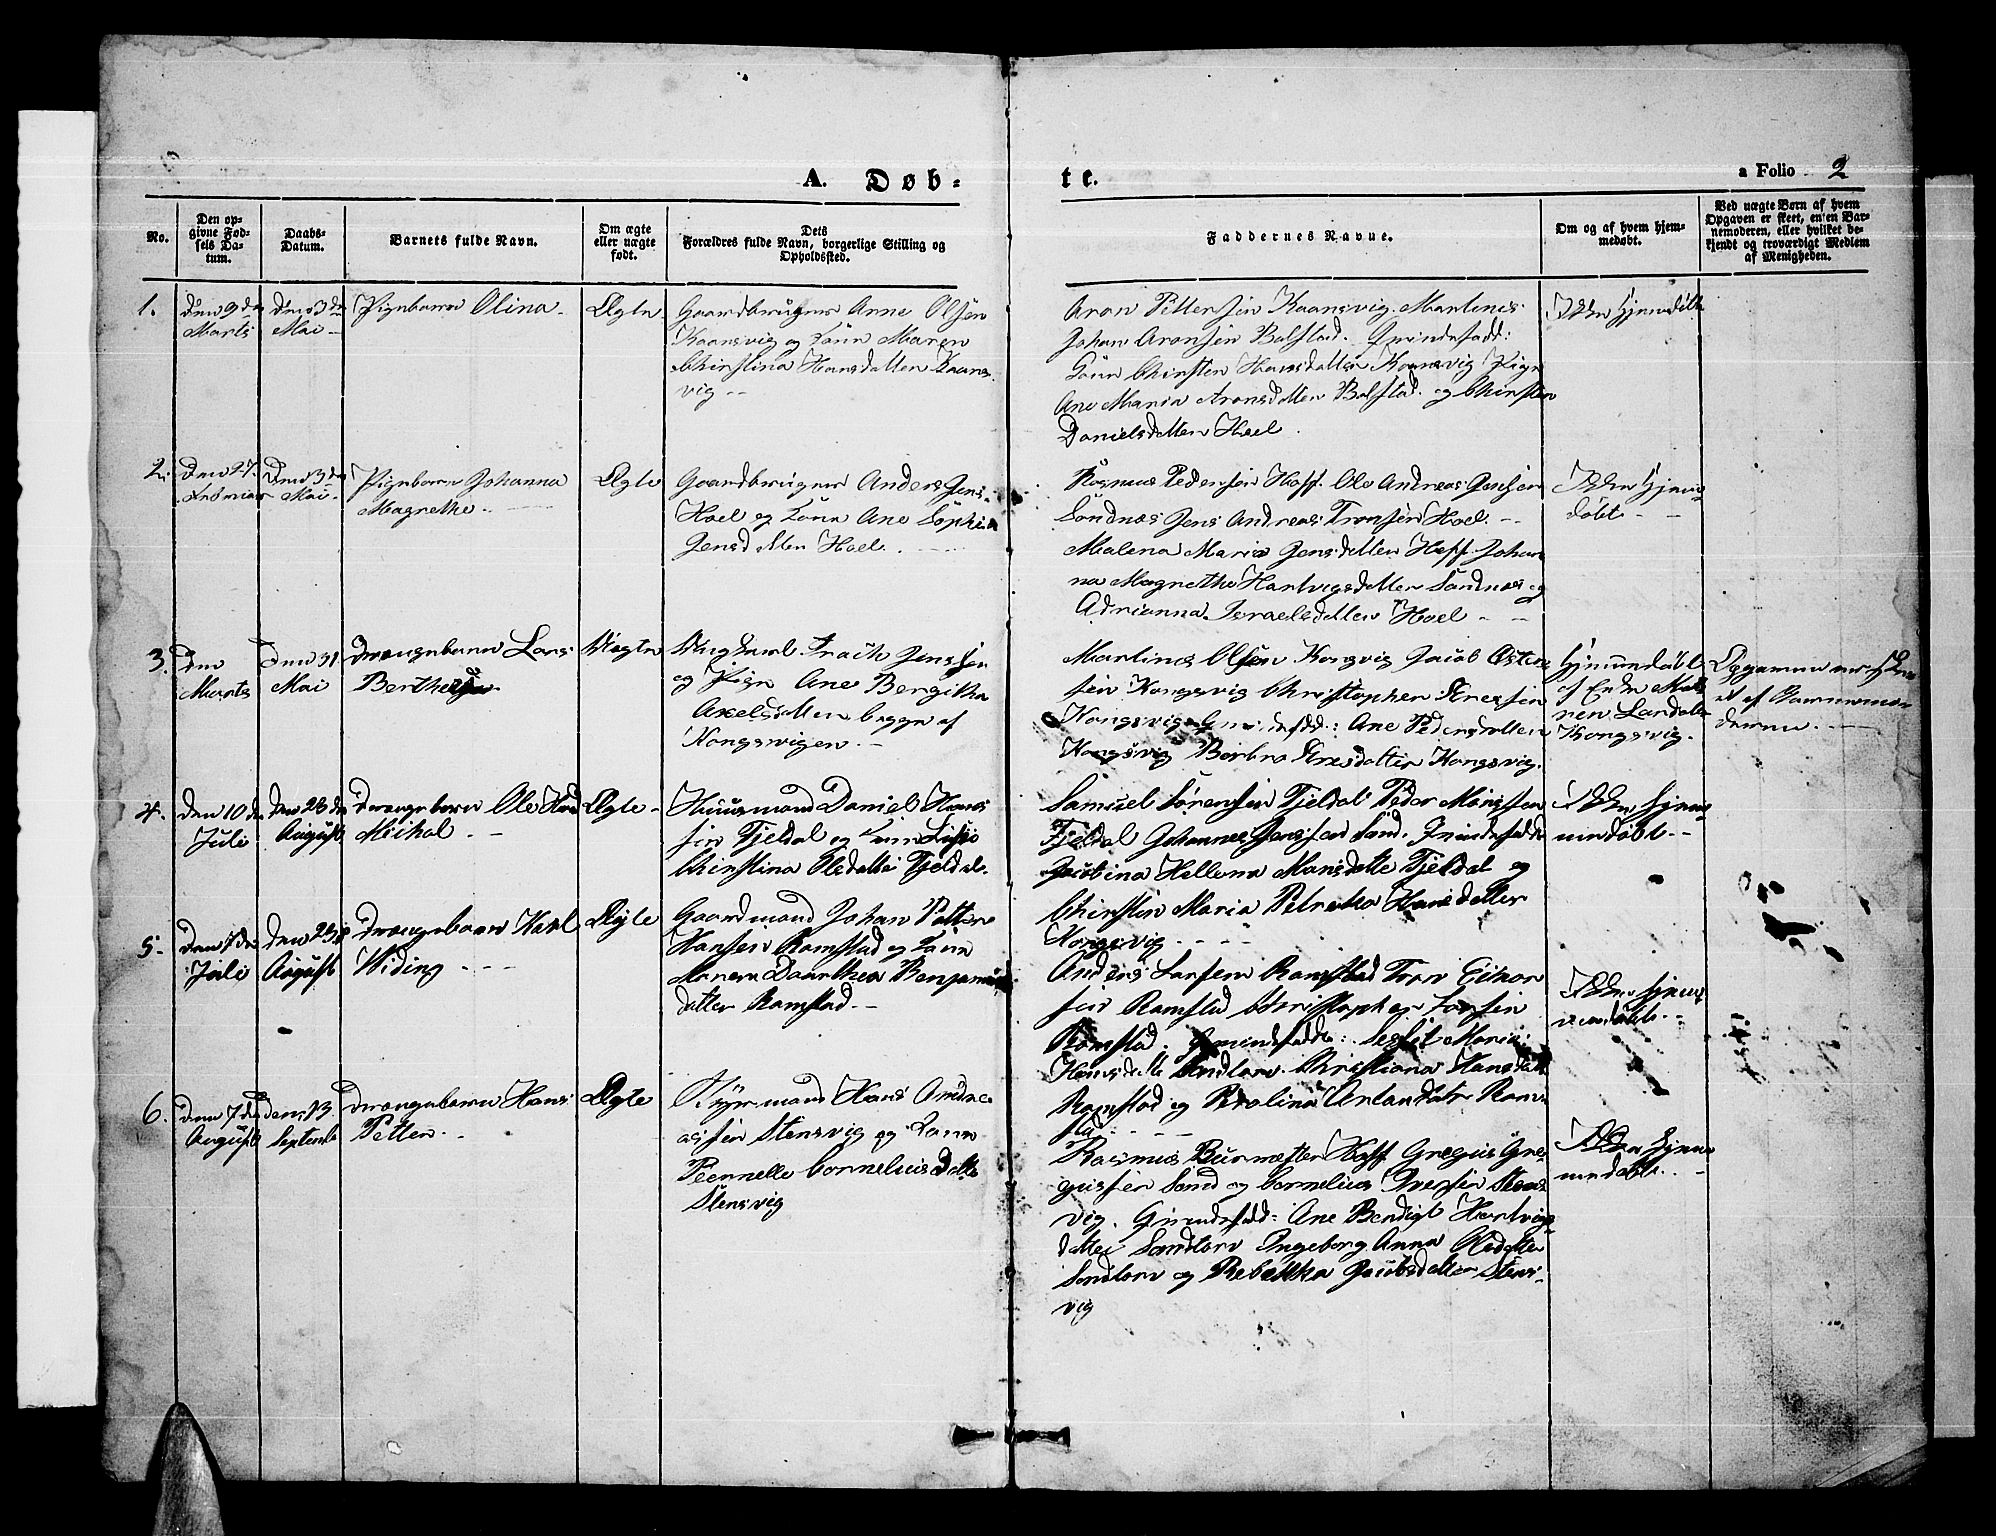 A. Døb=
te.
a Folio 2
No.
Den op=
givne Fød=
sels Da=
tum.
Daabs=
Datum.
Barnets fulde Navn.
Om ægte
eller uægte
født.
Dets
Forældres fulde Navn, borgerlige Stilling og
Opholdssted.
Faddernes Navne.
Om og af hvem hjem=
medøbt.
Ved uægte Børn af hvem
Opgaven er skeet, enten Bar=
nemoderen, eller hvilket be=
kjendt og troværdigt Medlem
af Menigheden.
1.
Den 9de
Marts
Den 3die
Mai
Pigebarn Olina
Ægte
Gaardbruger Arne Olsen
Kaansvig og Kone Maren
Christina Hansdatter Kaans
vig
Aron Pettersen Kaansvig. Martinis
Johan Aronsen Bolstad. Qvindefadd:
Kone Chirsten Hansdatter Kaansvig Pige
Ane Maria Aronsdatter Bolstad. og Chirsten
Danielsdatter Hoel.
Ikke Hjemmedøbt
2.
Den 27.
Februar
Den 3die
Mai
Pigebarn Johanna
Magrethe.
Ægte
Gaardbruger Anders Jens.
Hoel og Kone Ane Sophia
Jensdatter Hoel.
Rasmus Pedersen Hoff. Ole Andreas Jensen
Sandnes Jens Andreas Tronsen Hoel.
Malena Maria Jensdatter Hoff Johan
na Magrethe Hartvigsdatter Sandnes og
Adrianna Israelsdatter Hoel
Ikke Hjemme
døbt
3.
Den
Marts
Den 31
Mai
Drængebarn Lars
Uægte
Ungkarl Jensen
og Pige Ane Bergitha
Axelsdatter begge af
Kongsvigen.
Martinus Olsen Kongsvig Jacob Osten
sen Kongsvig Christopher
Kongsvig. fadd: Ane Pedersdatter
Kongsvig Barbra datter Kongsvig.
Hjemmedøbt
af
Kongsvig.
Opgaven er skee
et af Barnemo=
deren.
4.
Den 10de
Juli
Den 23de
August
Drængebarn Ole
Michal.
Ægte
Huusmand Daniel Hans
sen Tjeldal og Kone
Chirstina Olsdatter Tjeldal.
Samuel Sørensen Tjeldal Peder Monssen
Tjeldal Johannes Jenssen Sand. Qvindefadd:
Jacobina Hellena Monsdatte Tjeldal og
Chirsten Maria Petreka Hansdatter
Kongsvig
Ikke Hjem
medøbt.
5.
Den 7de
Juli
Den 23de
August
Drængebarn Karl
Hiding
Ægte
Gaardmand Johan Petter
Hansen Ramstad og Kone
Maren Daarthea Benjamins
datter Ramstad.
Anders Larsen Ramstad Tron Einar
sen Ramstad Christopher Larsen
Ramstad. Qvindefadd: Maria
Hansdatte Sandtorv. Christiana Hansdatt
Ramstad og datter Ram
stad
Ikke Hjem
medøbt.
6.
Den 7de
August
Den 13.
September
Drængebarn Hans
Petter.
Ægte
mand Hans Andre
assen Stensvig og Kone
Pernelle Cornelius Datter
Stensvig
Rasmus Burmester Hoff Gregus Gre
gussen Sand og Cornelius Iversen Stens
vig. Qvindefadd: Ane Bendigt Hartvigs
datter Sandtorv Ingeborg Anna Olsdatter
Sandtorv og Rebekka Jacobsdatter Stens
vig
Ikke Hjem
medøbt.